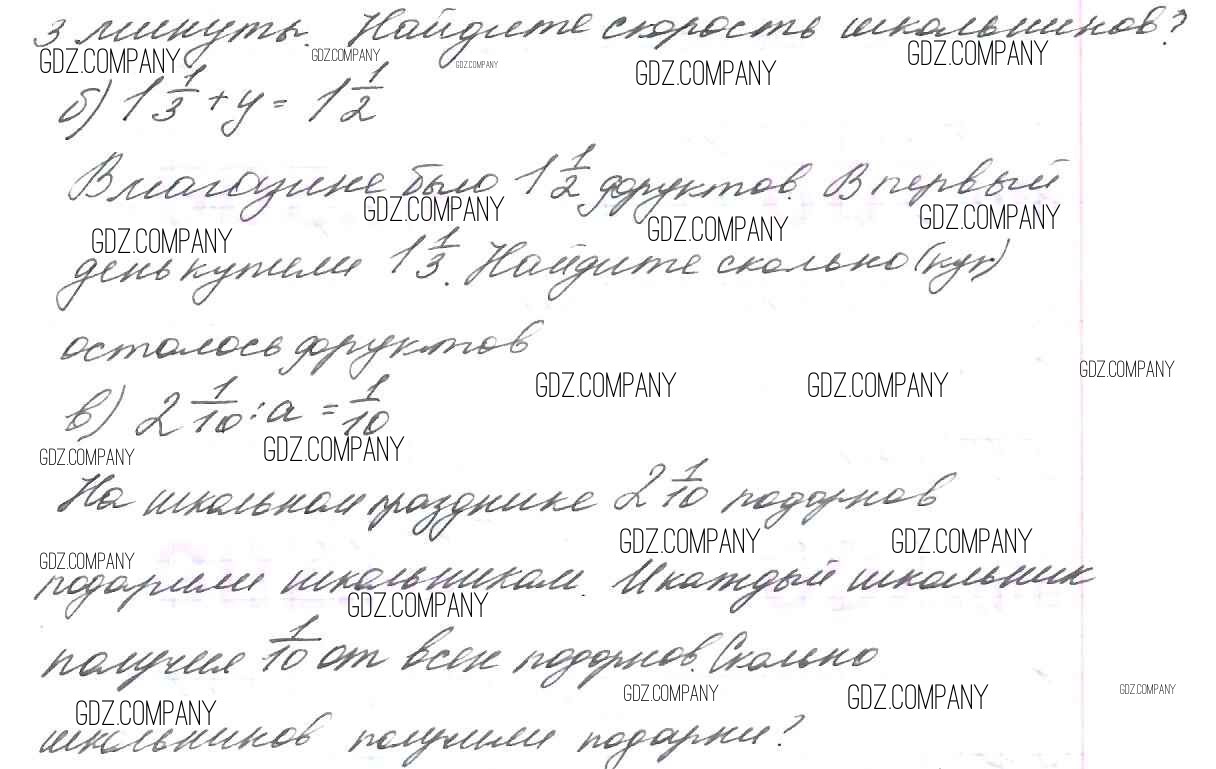 3 минуты. Найдите скорость школьников?
GDZ.COMPANY GDZ.COMPANY GDZ.COMPANY GDZ.COMPANY GDZ.COMPANY
б) 1 1/3 + y = 1 1/2
В магазине было 1 1/2 фруктов. В первый
GDZ.COMPANY GDZ.COMPANY GDZ.COMPANY GDZ.COMPANY
день купили 1 1/3. Найдите сколько
осталось фруктов
GDZ.COMPANY GDZ.COMPANY GDZ.COMPANY
в) 2 1/10 : a = 1/10
GDZ.COMPANY GDZ.COMPANY
На школьном празднике 2 1/10 подарков
GDZ.COMPANY GDZ.COMPANY GDZ.COMPANY
подарили школьникам. И каждый школьник
GDZ.COMPANY
получил 1/10 от всех подарков. Сколько
GDZ.COMPANY GDZ.COMPANY GDZ.COMPANY GDZ.COMPANY
школьников получили подарки?